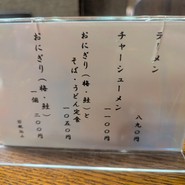 ラーメン
八五〇円
チャーシューメン
一一〇〇円
おにぎり(梅・鮭)と
そば・うどん定食
一〇五〇円
おにぎり(梅・鮭)
一個 二〇〇円